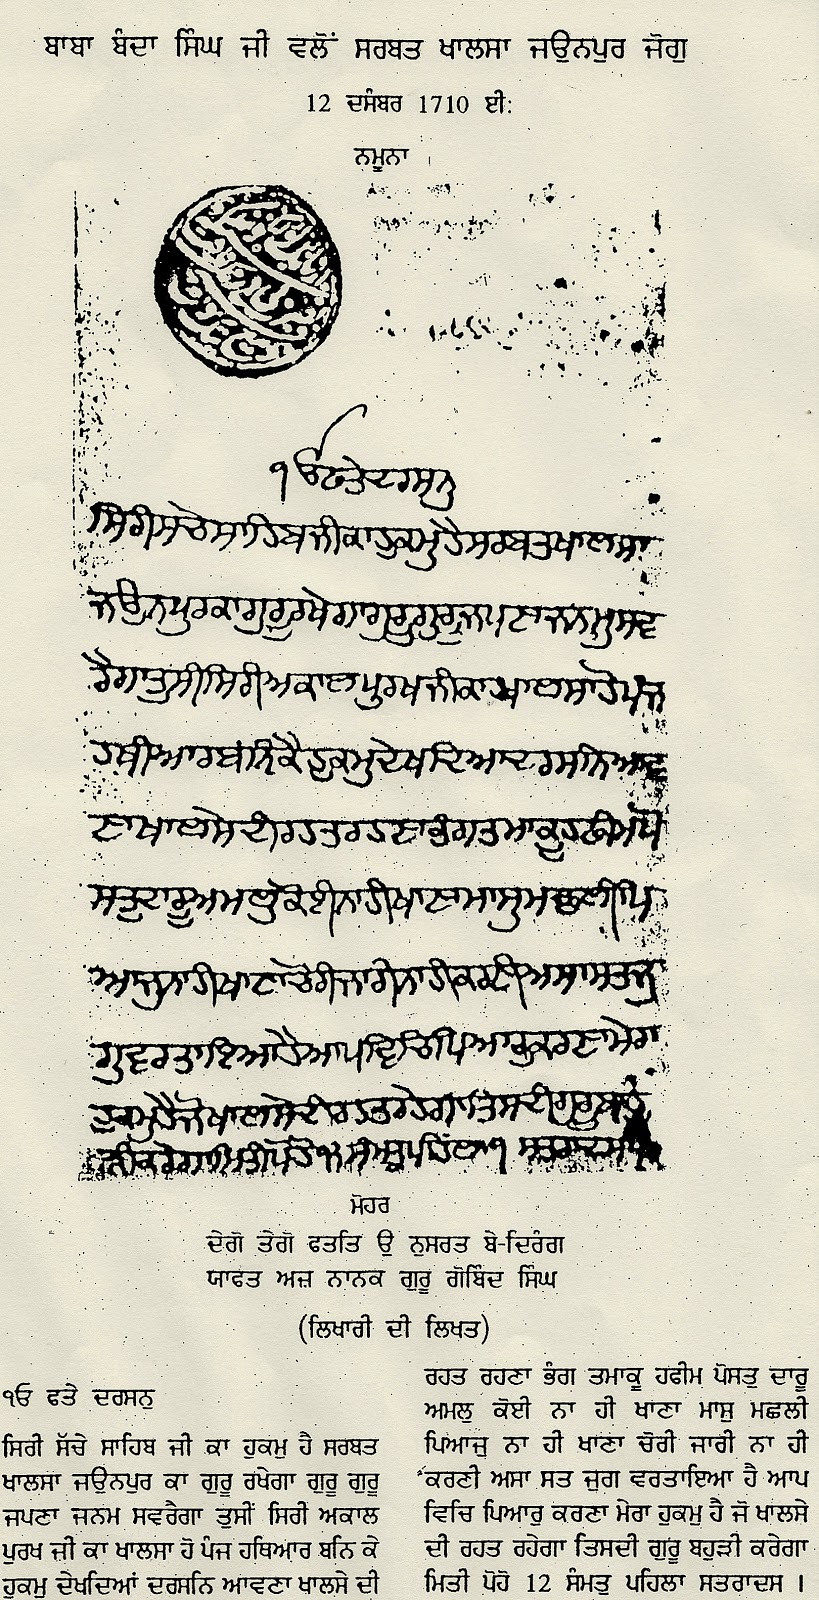 ਬਾਬਾ ਬੰਦਾ ਸਿੰਘ ਜੀ ਵਲੋਂ ਸਰਬਤ ਖਾਲਸਾ ਜਉਨਪੁਰ ਜੋਗੁ
12 ਦਸੰਬਰ 1710 ਈ:
ਨਮੂਨਾ ।
੧ਓ ਫਤੇ ਦਰਸਨੁ
ਸਿਰੀ ਸਚੇ ਸਾਹਿਬ ਜੀ ਕਾ ਹੁਕਮੁ ਹੈ ਸਰਬਤ ਖਾਲਸਾ
ਜਉਨਪੁਰ ਕਾ ਗੁਰੂ ਰਖੇਗਾ ਗੁਰੂ ਗੁਰੂ ਜਪਣਾ ਜਨਮੁ ਸਵ
ਰੈਗਾ ਤੁਸੀ ਸਿਰੀ ਅਕਾਲ ਪੁਰਖ ਜੀ ਕਾ ਖਾਲਸਾ ਹੋ ਪੰਜ
ਹਥੀਆਰ ਬੰਨਿ ਕੈ ਹੁਕਮੁ ਦੇਖਦਿਆ ਦਰਸਨਿ ਆਵ
ਣਾ ਖਾਲਸੇ ਦੀ ਰਹਤ ਰਹਣਾ ਭੰਗ ਤਮਾਕੂ ਹਫੀਮ ਪੋ
ਸਤੁ ਦਾਰੂ ਅਮਲੁ ਕੋਈ ਨਾਹੀ ਖਾਣਾ ਮਾਸੁ ਮਛਲੀ ਪਿ
ਆਜੁ ਨਾਹੀ ਖਾਣਾ ਚੋਰੀ ਜਾਰੀ ਨਾਹੀ ਕਰਣੀ ਅਸਾ ਸਤਜੁ
ਗੁ ਵਰਤਾਇਆ ਹੈ ਆਪ ਵਿਚਿ ਪਿਆਰੁ ਕਰਣਾ ਮੇਰਾ
ਹੁਕਮੁ ਹੈ ਜੋ ਖਾਲਸੇ ਦੀ ਰਹਤ ਰਹੇਗਾ ਤਿਸ ਦੀ ਗੁਰੂ ਬਹੁ
ੜੀ ਕਰੇਗਾ ਮਿਤੀ ਪੋਹੋ ੧੨ ਸੰਮਤੁ ਪਹਿਲਾ ੧ ਸਤਰਾ ਦਸ
ਮੋਹਰ
ਦੇਗੋ ਤੇਗੋ ਫਤਤਿ ਉ ਨੁਸਰਤ ਬੇ-ਦਿਰੰਗ
ਯਾਫਤ ਅਜ਼ ਨਾਨਕ ਗੁਰੂ ਗੋਬਿੰਦ ਸਿੰਘ
(ਲਿਖਾਰੀ ਦੀ ਲਿਖਤ)
੧ਓ ਫਤੇ ਦਰਸਨੁ
ਸਿਰੀ ਸੱਚੇ ਸਾਹਿਬ ਜੀ ਕਾ ਹੁਕਮੁ ਹੈ ਸਰਬਤ
ਖਾਲਸਾ ਜਉਨਪੁਰ ਕਾ ਗੁਰੂ ਰਖੇਗਾ ਗੁਰੂ ਗੁਰੂ
ਜਪਣਾ ਜਨਮ ਸਵਰੈਗਾ ਤੁਸੀਂ ਸਿਰੀ ਅਕਾਲ
ਪੁਰਖ ਜੀ ਕਾ ਖਾਲਸਾ ਹੋ ਪੰਜ ਹਥਿਆਰ ਬਨਿ ਕੇ
ਹੁਕਮੁ ਦੇਖਦਿਆਂ ਦਰਸਨਿ ਆਵਣਾ ਖਾਲਸੇ ਦੀ
ਰਹਤ ਰਹਣਾ ਭੰਗ ਤਮਾਕੂ ਹਫੀਮ ਪੋਸਤੁ ਦਾਰੂ
ਅਮਲੁ ਕੋਈ ਨਾ ਹੀ ਖਾਣਾ ਮਾਸੁ ਮਛਲੀ
ਪਿਆਜੁ ਨਾ ਹੀ ਖਾਣਾ ਚੋਰੀ ਜਾਰੀ ਨਾ ਹੀ
ਕਰਣੀ ਅਸਾ ਸਤ ਜੁਗ ਵਰਤਾਇਆ ਹੈ ਆਪ
ਵਿਚਿ ਪਿਆਰੁ ਕਰਣਾ ਮੇਰਾ ਹੁਕਮੁ ਹੈ ਜੋ ਖਾਲਸੇ
ਦੀ ਰਹਤ ਰਹੇਗਾ ਤਿਸਦੀ ਗੁਰੂ ਬਹੁੜੀ ਕਰੇਗਾ
ਮਿਤੀ ਪੋਹੋ 12 ਸੰਮਤੁ ਪਹਿਲਾ ਸਤਰਾਦਸ ।